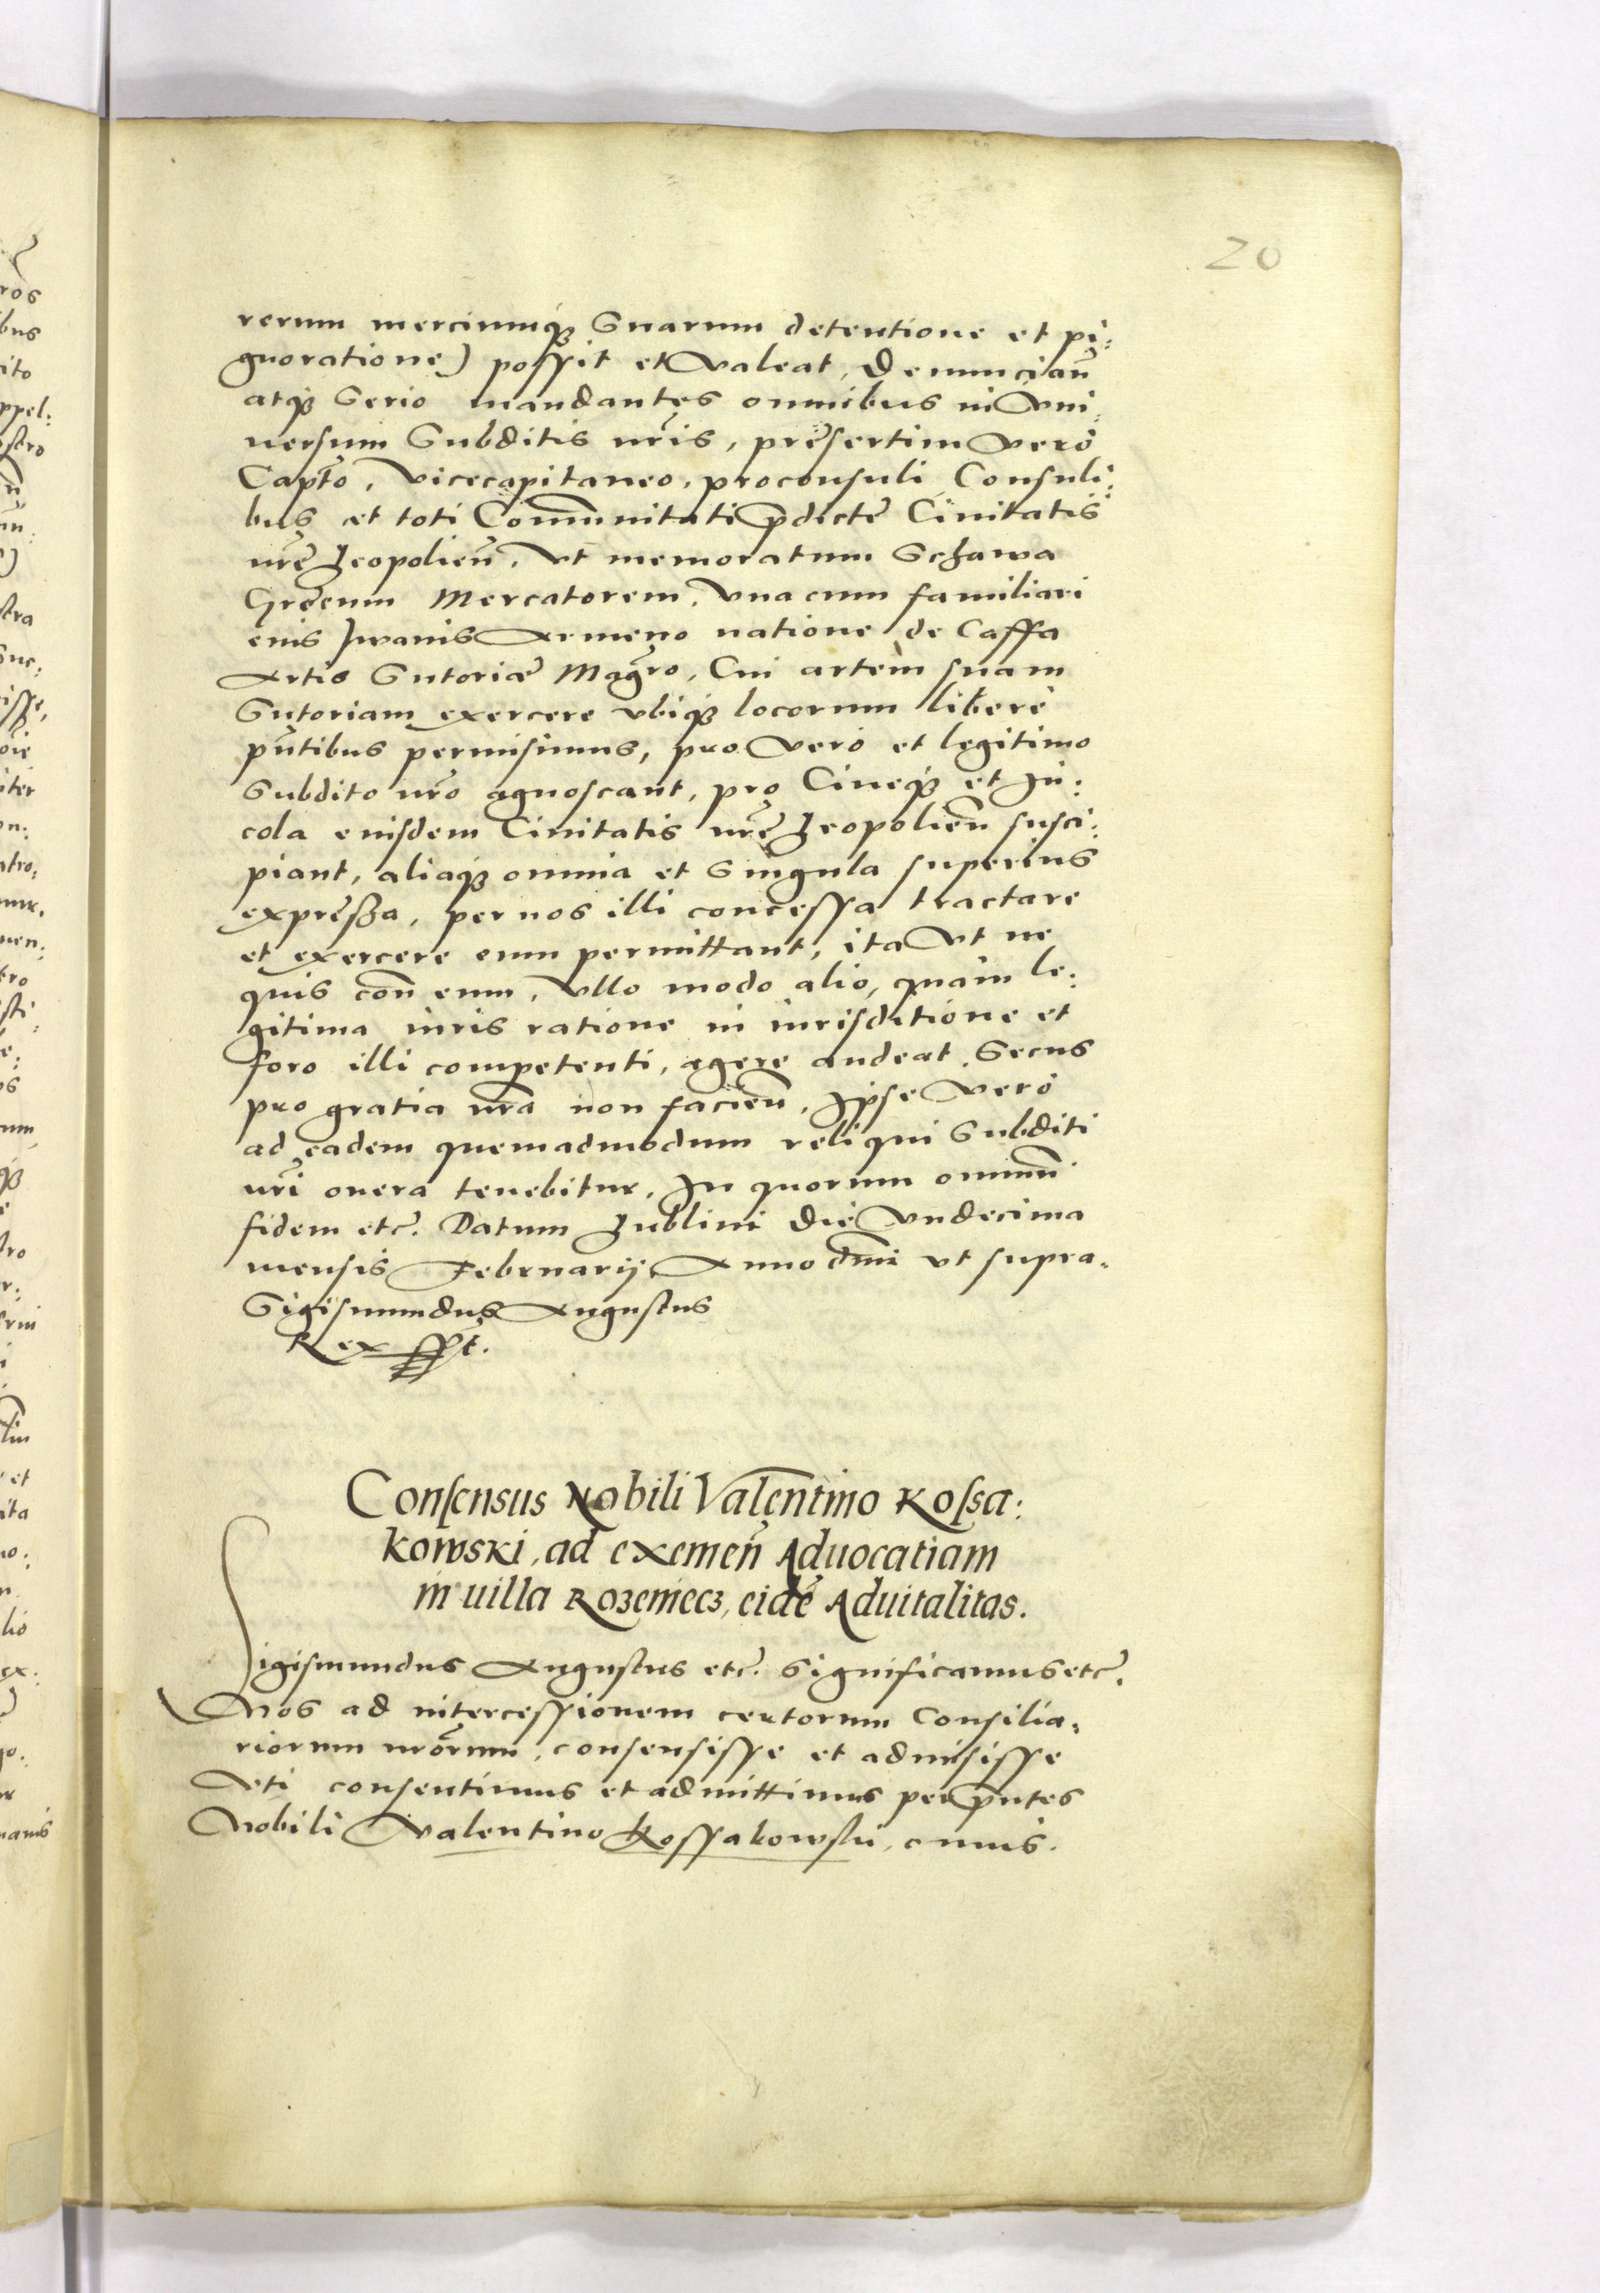 20
rerum merciumq̃ Suarum detentione et pi:
gnoratione) possit et Valeat, Denuncian̄
atq̃ Serio mandantes omnibus in Vni:
uersum Subditis nr̄is, presertim Vero
Capt̄o, Vicecapitaneo, proconsuli Consuli:
bus et toti Com̄unitati p̄dicte Ciuitatis
nr̄e Leopolien̄, Vt memoratum Schawa
Grecum Mercatorem, Vna cum familiari
eius Jwanis Armeno natione de Caffa
Artis Sutoriæ Magr̄o, Cui artem suam
Sutoriam exercere vbiq̃ locorum libere
pn̄tibus permisimus, pro Vero et legitimo
Subdito nr̄o agnoscant, pro Ciueq̃ et In:
cola eiusdem Ciuitatis nr̄e Leopolien̄ susci:
piant, aliaq̃ omnia et Singula superius
expressa, per nos illi concessa tractare
et exercere eum permittant, ita Vt ne
quis con̄ eum, Vllo modo alio, quam le:
gitima iuris ratione in iurisditione et
foro illi competenti, agere audeat. Secus
pro gratia nr̄a non facien̄, Ipse Vero
ad eadem quemadmodum reliqui Subditi
nr̄i onera tenebitur, In quorum omniū
fidem etc̄. Datum Lublini Die Vndecima
mensis Februarij, Anno dn̄i vt supra.
Sigismundus Augustus
Rex sspt̄.
Consensus Nobili Valentino Kossa:
kowski, ad exemen̄ Aduocatiam
in uilla Rozeniecz, eidē Aduitalitas.
Sigismundus Augustus etc̄. Significamus etc̄.
Nos ad intercessionem certorum Consilia:
riorum nr̄orum, consensisse et admisisse
Vti consentimus et admittimus per p̄ntes
Nobili Valentino Kossakowski, cuius.